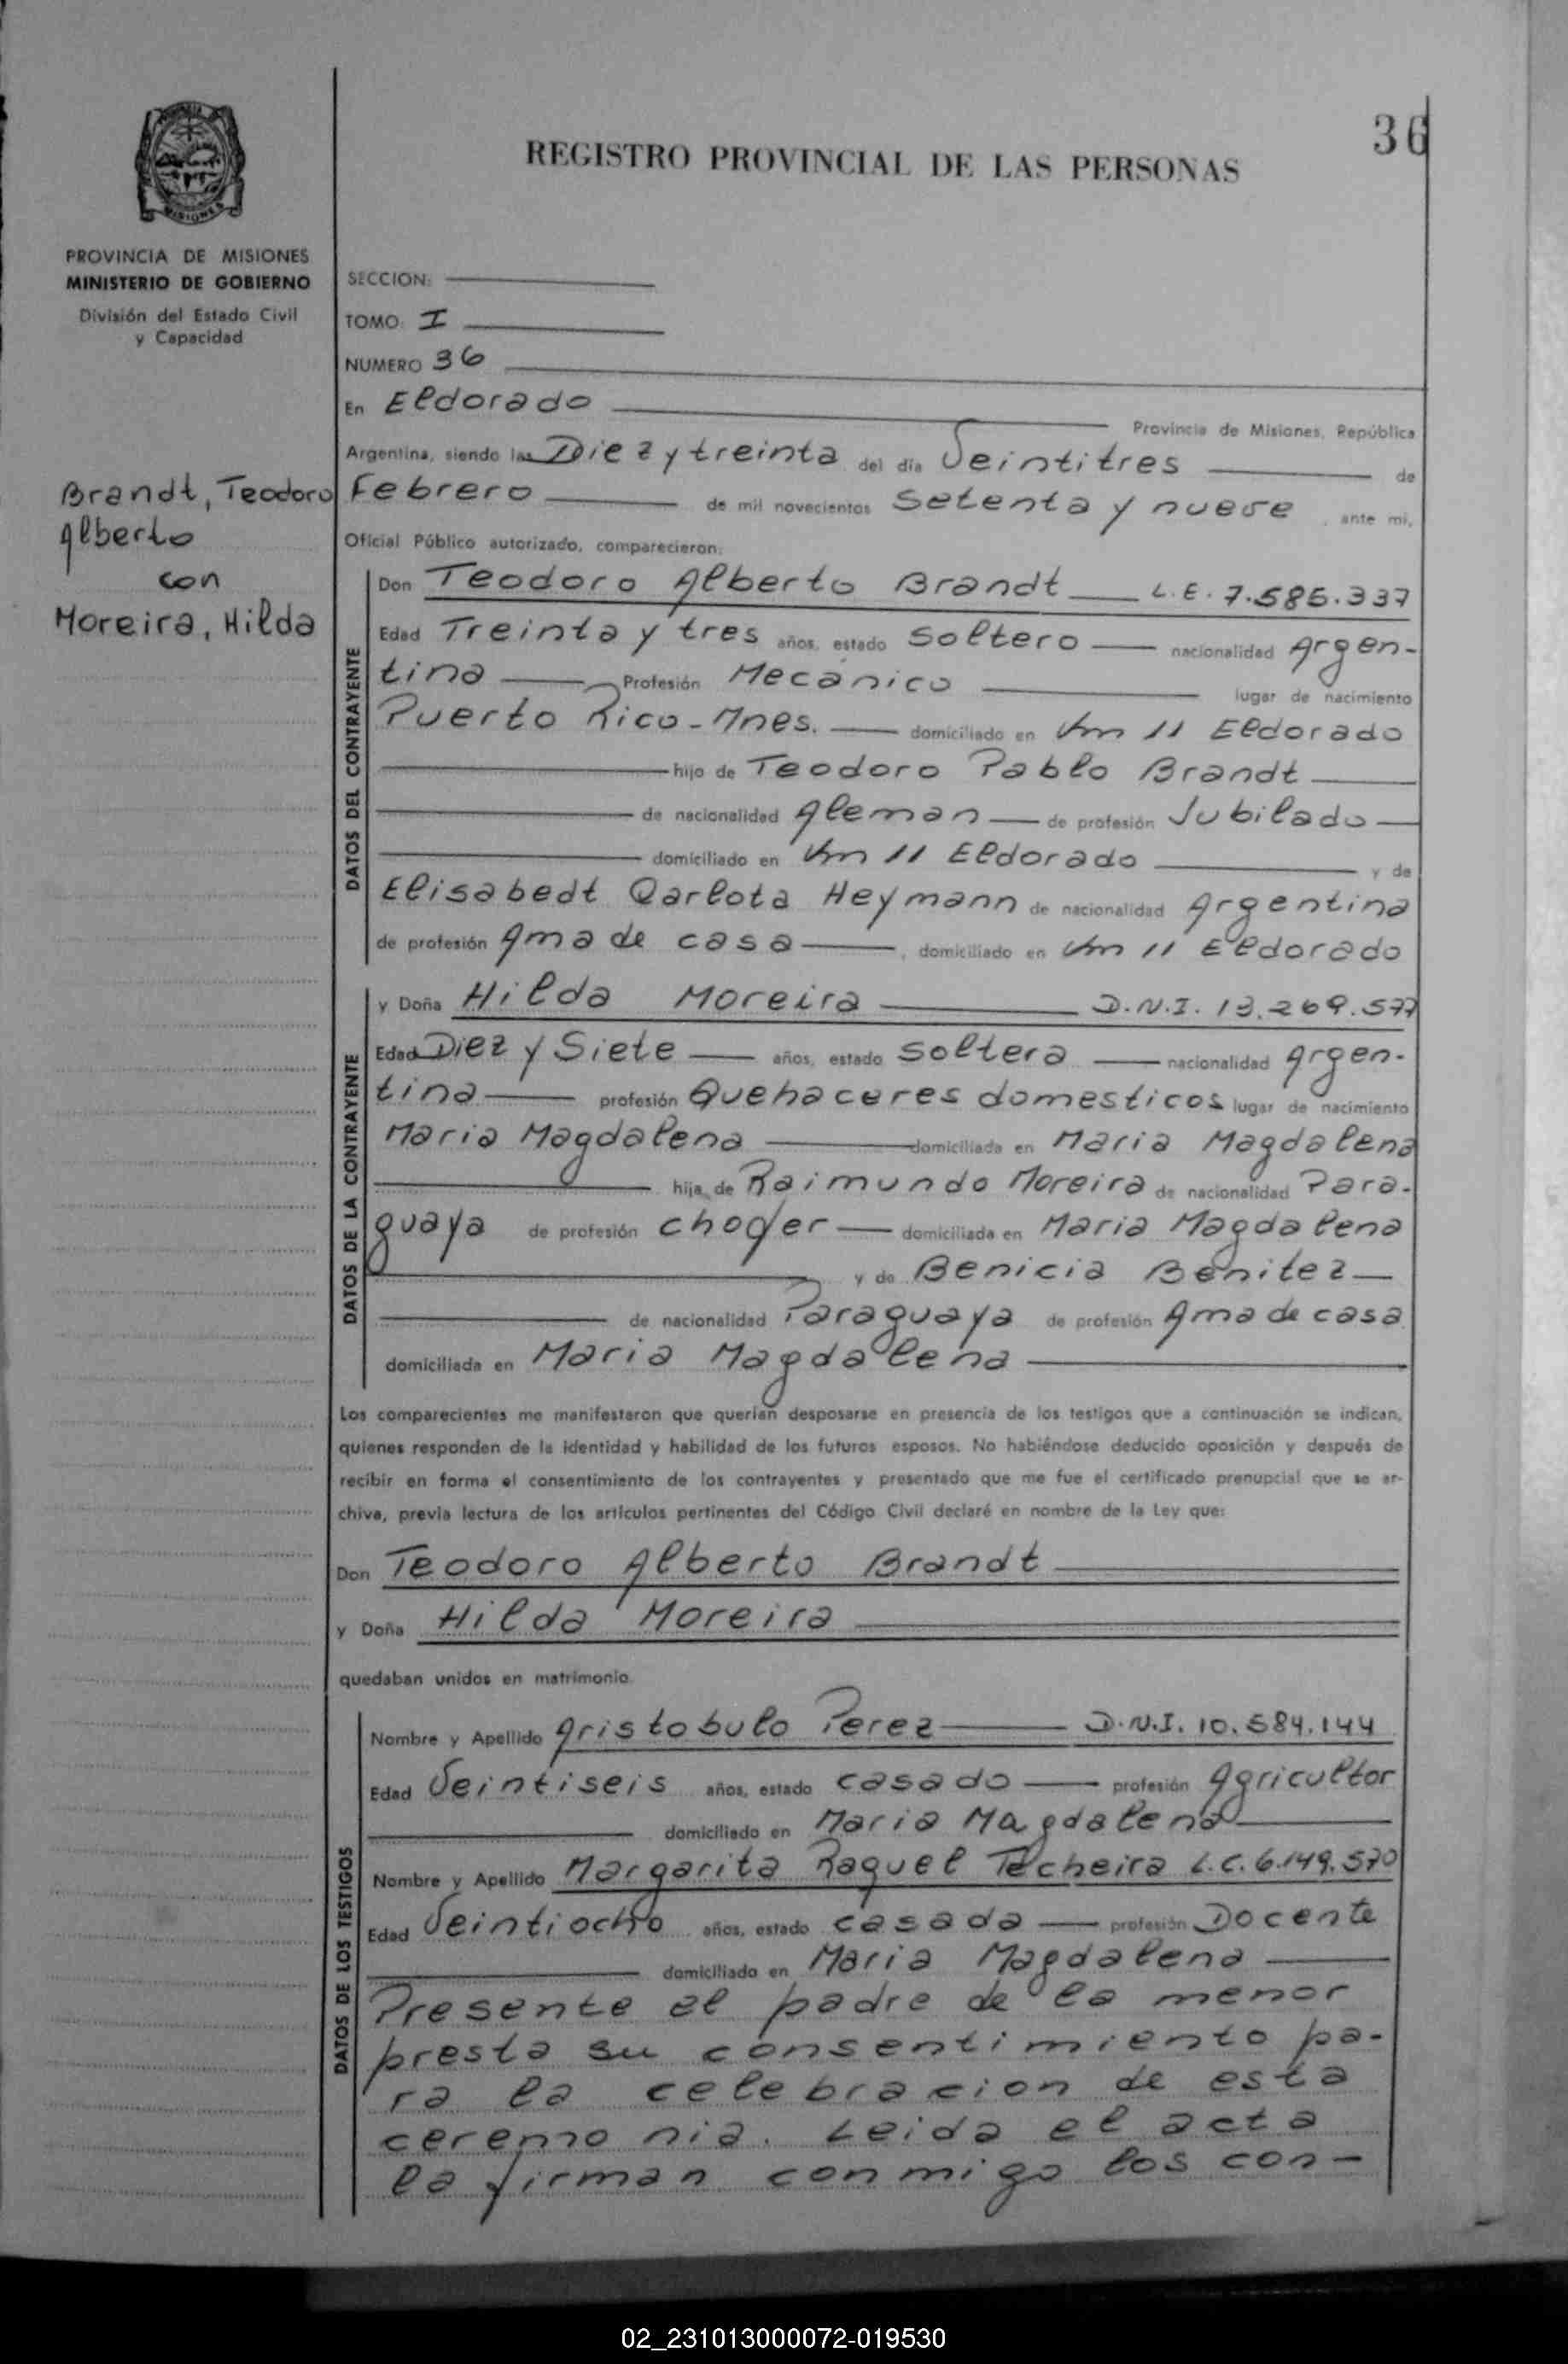 36
REGISTRO PROVINCIAL DE LAS PERSONAS
MISIONES
PROVINCIA DE MISIONES
MINISTERIO DE GOBIERNO
División del Estado Civil
y Capacidad
Brandt, Teodoro
Alberto
con
Moreira, Hilda
SECCION:
TOMO: I
NUMERO 36
En Eldorado Provincia de Misiones, República
Argentina, siendo las Diez y treinta del día Veintitres de
Febrero de mil novecientos Setenta y nueve, ante mi,
Oficial Público autorizado, comparecieron:
DATOS DEL CONTRAYENTE
Don Teodoro Alberto Brandt L.E. 7.585.337
Edad Treinta y tres años, estado Soltero nacionalidad Argen-
tina Profesión Mecánico lugar de nacimiento
Puerto Rico-Mnes. domiciliado en Km 11 Eldorado
hijo de Teodoro Pablo Brandt
de nacionalidad Aleman de profesión Jubilado
domiciliado en Km 11 Eldorado y de
Elisabedt Qarlota Heymann de nacionalidad Argentina
de profesión Ama de casa, domiciliado en Km 11 Eldorado
DATOS DE LA CONTRAYENTE
y Doña Hilda Moreira D.N.I. 13.269.577
Edad Diez y Siete años, estado Soltera nacionalidad Argen-
tina profesión Quehaceres domesticos lugar de nacimiento
Maria Magdalena domiciliada en Maria Magdalena
hija de Raimundo Moreira de nacionalidad Para-
guaya de profesión chofer domiciliada en Maria Magdalena
y de Benicia Benitez
de nacionalidad Paraguaya de profesión Ama de casa
domiciliada en Maria Magdalena
Los comparecientes me manifestaron que querían desposarse en presencia de los testigos que a continuación se indican,
quienes responden de la identidad y habilidad de los futuros esposos. No habiéndose deducido oposición y después de
recibir en forma el consentimiento de los contrayentes y presentado que me fue el certificado prenupcial que se ar-
chiva, previa lectura de los artículos pertinentes del Código Civil declaré en nombre de la Ley que:
Don Teodoro Alberto Brandt
y Doña Hilda Moreira
quedaban unidos en matrimonio.
DATOS DE LOS TESTIGOS
Nombre y Apellido Aristobulo Perez D.N.I. 10.584.144
Edad Veintiseis años, estado casado profesión Agricultor
domiciliado en Maria Magdalena
Nombre y Apellido Margarita Raquel Techeira L.C. 6.149.570
Edad Veintiocho años, estado casada profesión Docente
domiciliado en Maria Magdalena
Presente el padre de la menor
presta su consentimiento pa-
ra la celebracion de esta
ceremonia. Leida el acta
la firman conmigo los con-
02_231013000072-019530